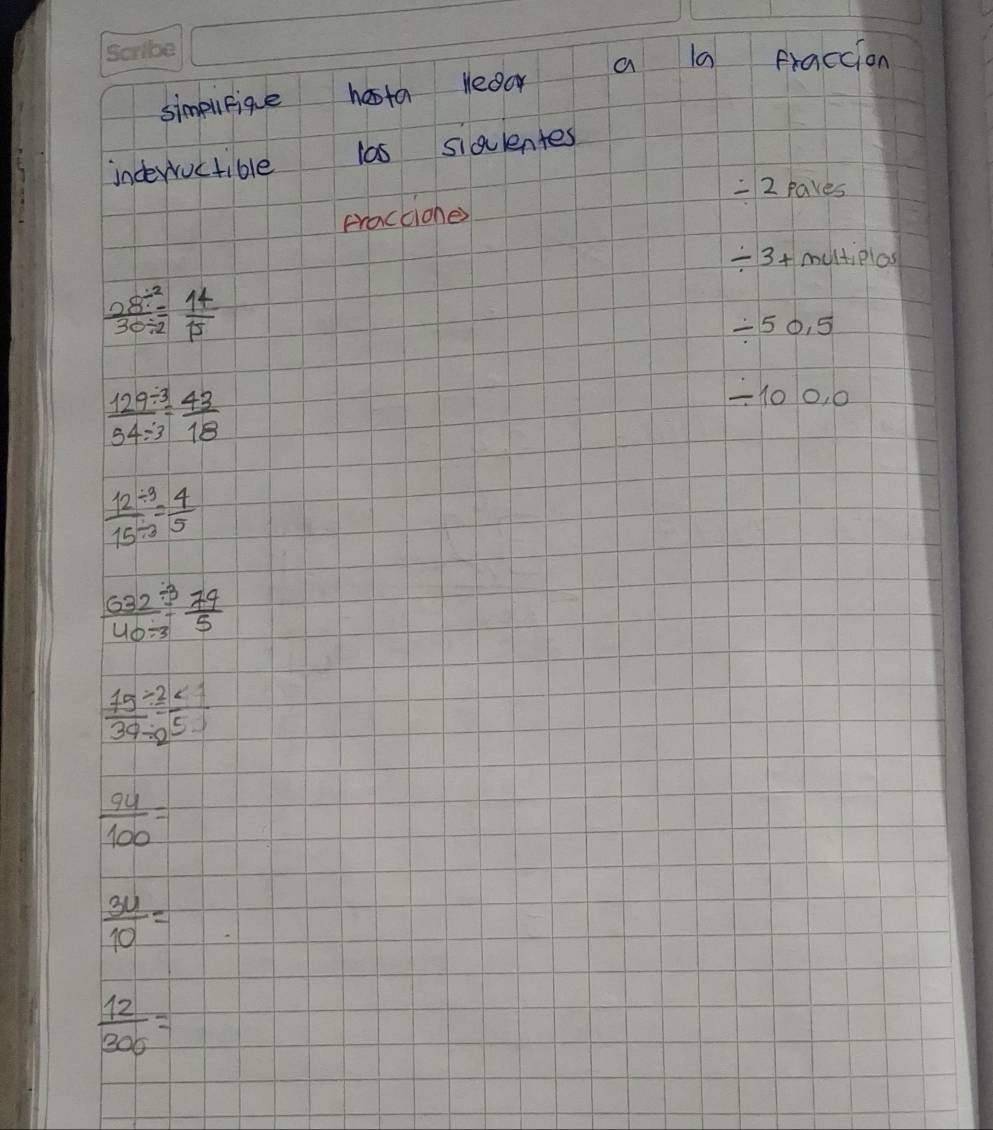 Scribe
simplifique hasta llegar a la fraccion
inderructible las siguientes
fracciones
÷ 2 pares
÷ 3 + multiplos
28÷2/30÷2 = 14/15
÷ 5 0,5
129÷3/54÷3 = 43/18
÷ 10 0,0
12÷3/15÷3 = 4/5
632÷3/40÷3 = 79/5
15÷2/39÷2 =
94/100 =
34/10 =
12/306 =